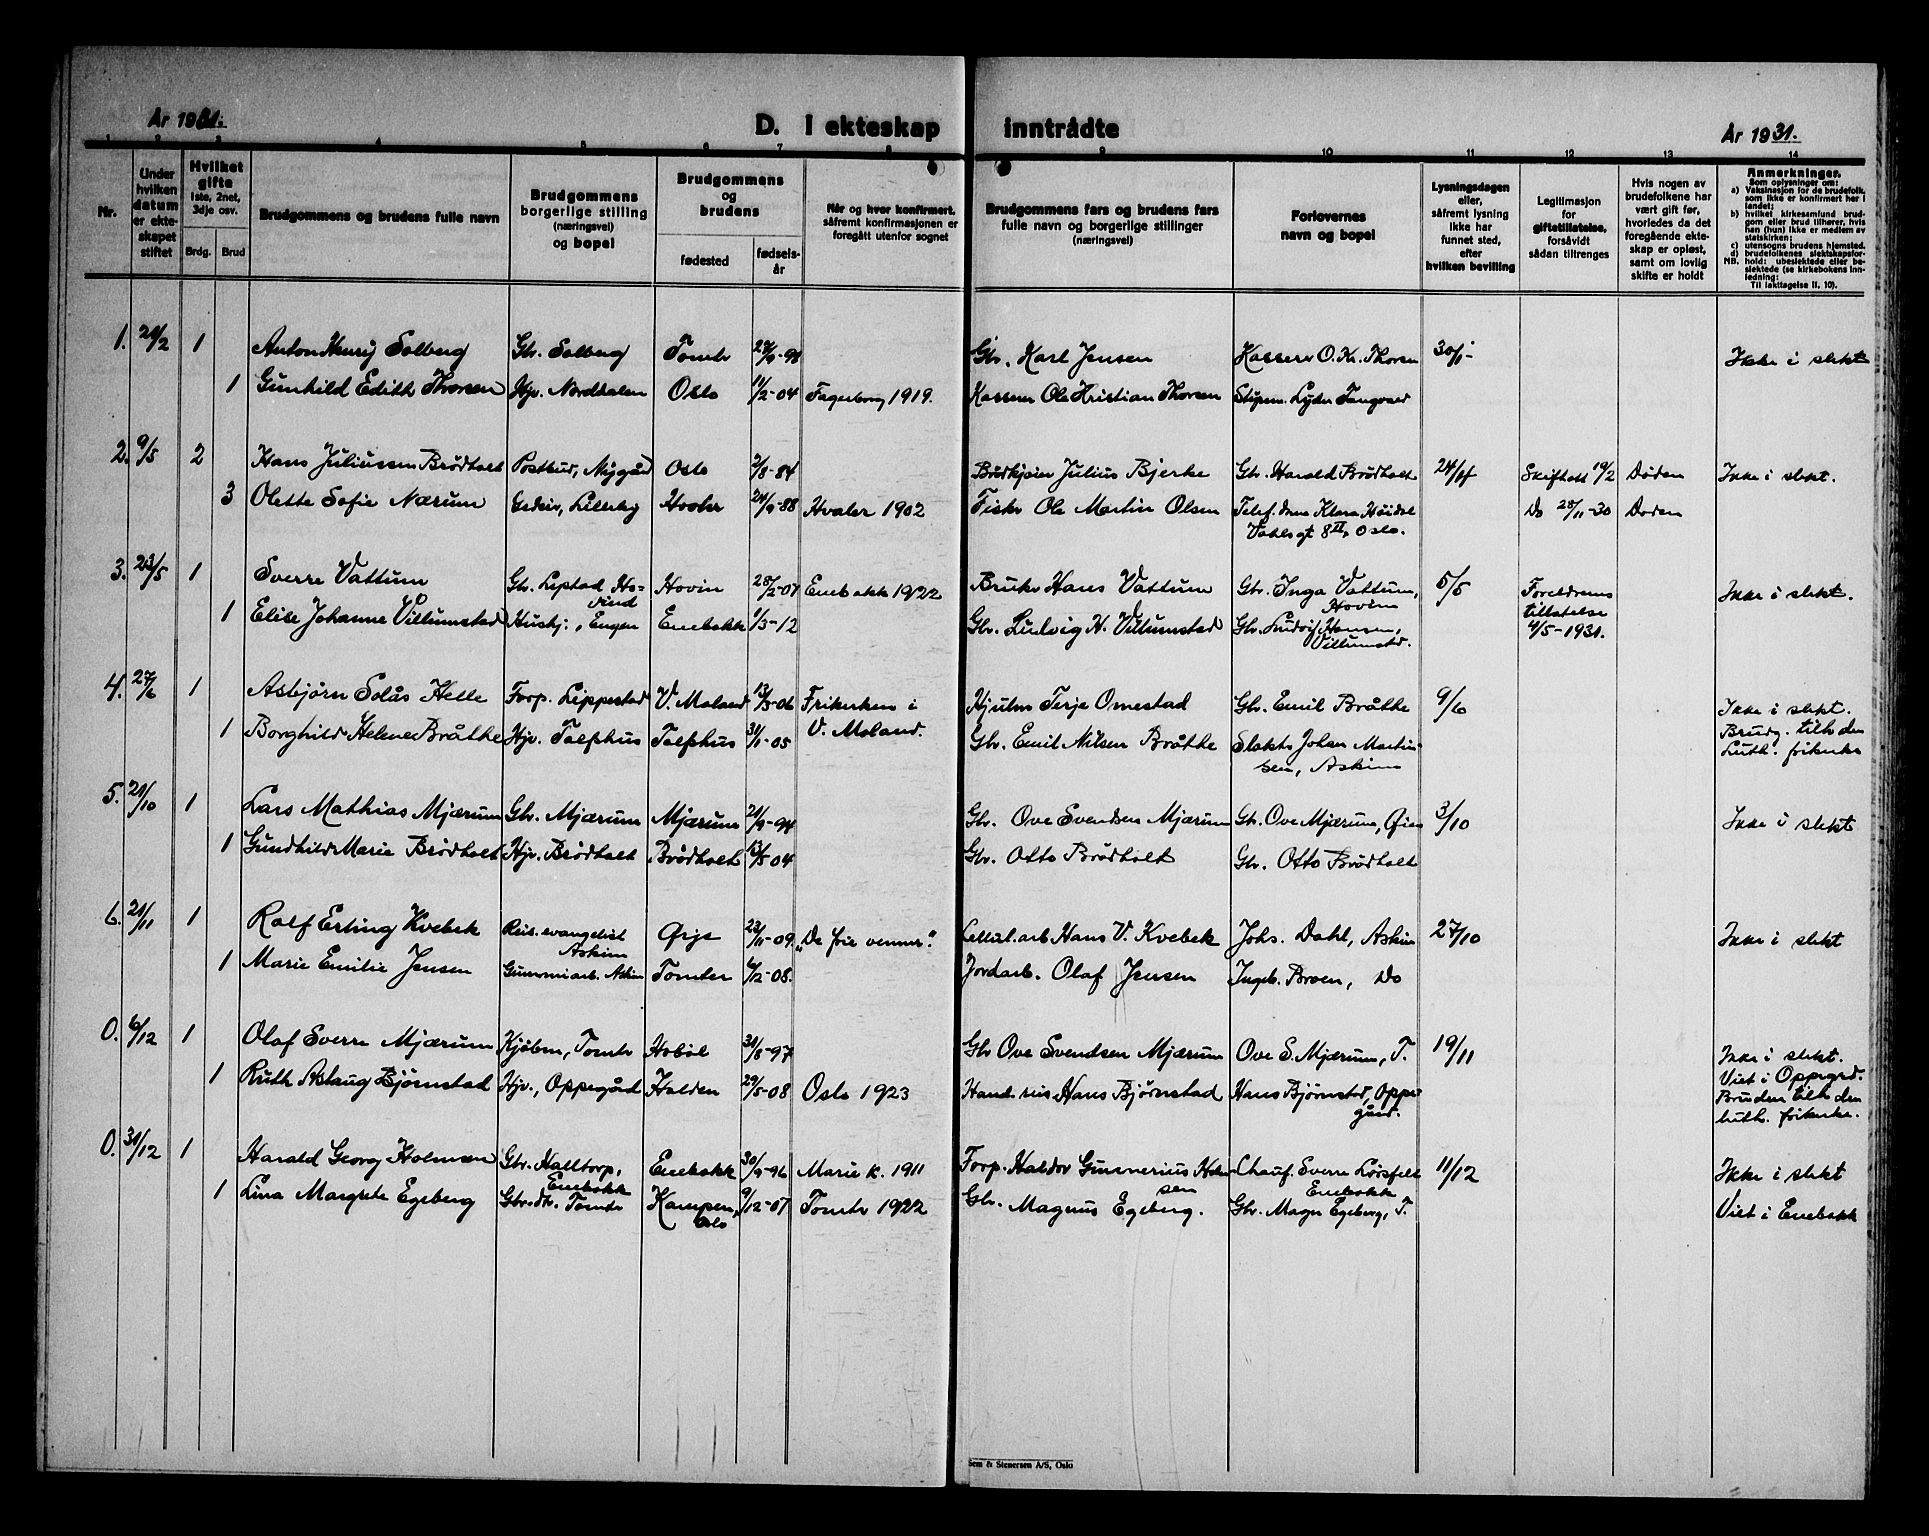 År 1931.
D. I ekteskap inntrådte
År 1931.
1 2 3 4 5 6 7 8 9 10 11 12 13 14
Nr.
Under hvilken datum er ekteskapet stiftet
Hvilket gifte 1ste, 2net, 3dje osv.
Brdg. Brud
Brudgommens og brudens fulle navn
Brudgommens borgerlige stilling (næringsvei) og bopel
Brudgommens og brudens
fødested
fødselsår
Når og hvor konfirmert, såfremt konfirmasjonen er foregått utenfor sognet
Brudgommens fars og brudens fars fulle navn og borgerlige stillinger (næringsvei)
Forlovernes navn og bopel
Lysningsdagen eller, såfremt lysning ikke har funnet sted, efter hvilken bevilling
Legitimasjon for giftetillatelse, forsåvidt sådan tiltrenges
Hvis nogen av brudefolkene har vært gift før, hvorledes da det foregående ekteskap er opløst, samt om lovlig skifte er holdt
Anmerkninger.
Som oplysninger om:
a) Vaksinasjon for de brudefolk, som ikke er konfirmert her i landet;
b) hvilket kirkesamfund brudgom eller brud tilhører, hvis han (hun) ikke er medlem av statskirken;
c) utensogns brudens hjemsted.
d) brudefolkenes slektskapsforhold: ubeslektede eller beslektede (se kirkebokens innledning:
NB.
Til iakttagelse II, 10).
1. 21/2 1 Anton Henry Solberg Gbr. Solberg Tomter 27/9-98 Gbr. Karl Jensen Kasserer O. Kr. Thorsen 30/1- Ikke i slekt
1 Gunhild Edith Thorsen Hjv. Norddalen Oslo 11/2-04 Fagerborg 1919. Kasserer Ole Kristian Thorsen Stipen. Lyder Tangvald
2. 9/5 2 Hans Juliussen Brødholt Postbud, Nygård Oslo 2/8-84 Budkjører Julius Bjerke Gbr. Harald Brødholt 24/4 Skifteatt 19/2 Døden Ikke i slekt.
3 Olette Sofie Nærum Lilleby Hvaler 24/9-88 Hvaler 1902 Fisker Ole Martin Olsen Telef.dame Klara Høidal Do 28/11-30 Døden
Vahlsgt 8 II, Oslo.
3. 23/5 1 Sverre Vattum Gbr. Lepstad Ho- Hovin 28/2-07 Enebakk 1922 Bruker Hans Vattum Gbr. Inga Vattum, 5/5 Foreldrenes Ikke i slekt.
vind Hovin tillatelse
1 Elise Johanne Villumstad Hushj., Engen Enebakk 1/3-12 Gbr. Ludvig H. Villumstad Gbr. Ludvig Hansen, 4/5-1931.
Villumstad.
4. 27/6 1 Asbjørn Solås Helle Forp. Lippestad V. Moland 13/3-06 Frikirken i Hjulm Terje Omestad Gbr. Emil Bråthe 9/6 Ikke i slekt.
1 Borghild Helene Bråthe Hjv. Tolfhus Tolfhus 31/1-05 V. Moland. Gbr. Emil Nilsen Bråthe Slakter Johan Martin- Brudg. tilh den
sen, Askim Luth. frikirke
5. 21/10 1 Lars Mathias Mjærum Gbr. Mjærum Mjærum 21/9-94 Gbr. Ove Svendsen Mjærum Gb. Ove Mjærum, 3/10 Ikke i slekt
1 Gundhild Marie Brødholt Hjv. Brødholt Brødholt 13/5 04 Gbr. Otto Brødholt Gbr. Otto Brødholt
6. 21/11 1 Rolf Erling Kvebek Reis. evangelist Ørje 23/11-09. „De frie venner". Cellul.arb Hans V. Kvebek Johs. Dahl, Askim 27/10 Ikke i slekt
Askim
1 Marie Emilie Jensen Gummiarb. Askim Tomter 6/12-08. Jordarb. Olaf Jensen Ingeb. Broen, Do
0. 6/12 1 Olaf Sverre Mjærum Kjøbm, Tomter Hobøl 31/8-97 Gbr Ove Svendsen Mjærum Ove S. Mjærum, T. 19/11 Ikke i slekt.
Viet i Oppegrd.
1 Ruth Aslaug Bjørnstad Hjv., Oppegård Halden 29/5-08 Oslo 1923 Hand.reis Hans Bjørnstad Hans Bjørnstad, Oppe- Bruden tilh den
gård. luth. frikirke.
0. 31/12 1 Harald Georg Holmsen Gbr. Halltorp, Enebakk 30/9-96 Marie k. 1911 Forp. Haldor Gunnerius Holm- Chauf. Sverre Løisfelt 11/12 Ikke i slekt
Enebakk sen Enebakk
1 Lina Margrete Egeberg Gbr.dtr. Tomter Kampen, 9/12-07 Tomter 1922 Gbr. Magnus Egeberg. Gbr. Magn Egeberg, T. Viet i Enebakk
Oslo
Sem & Stenersen A/S, Oslo